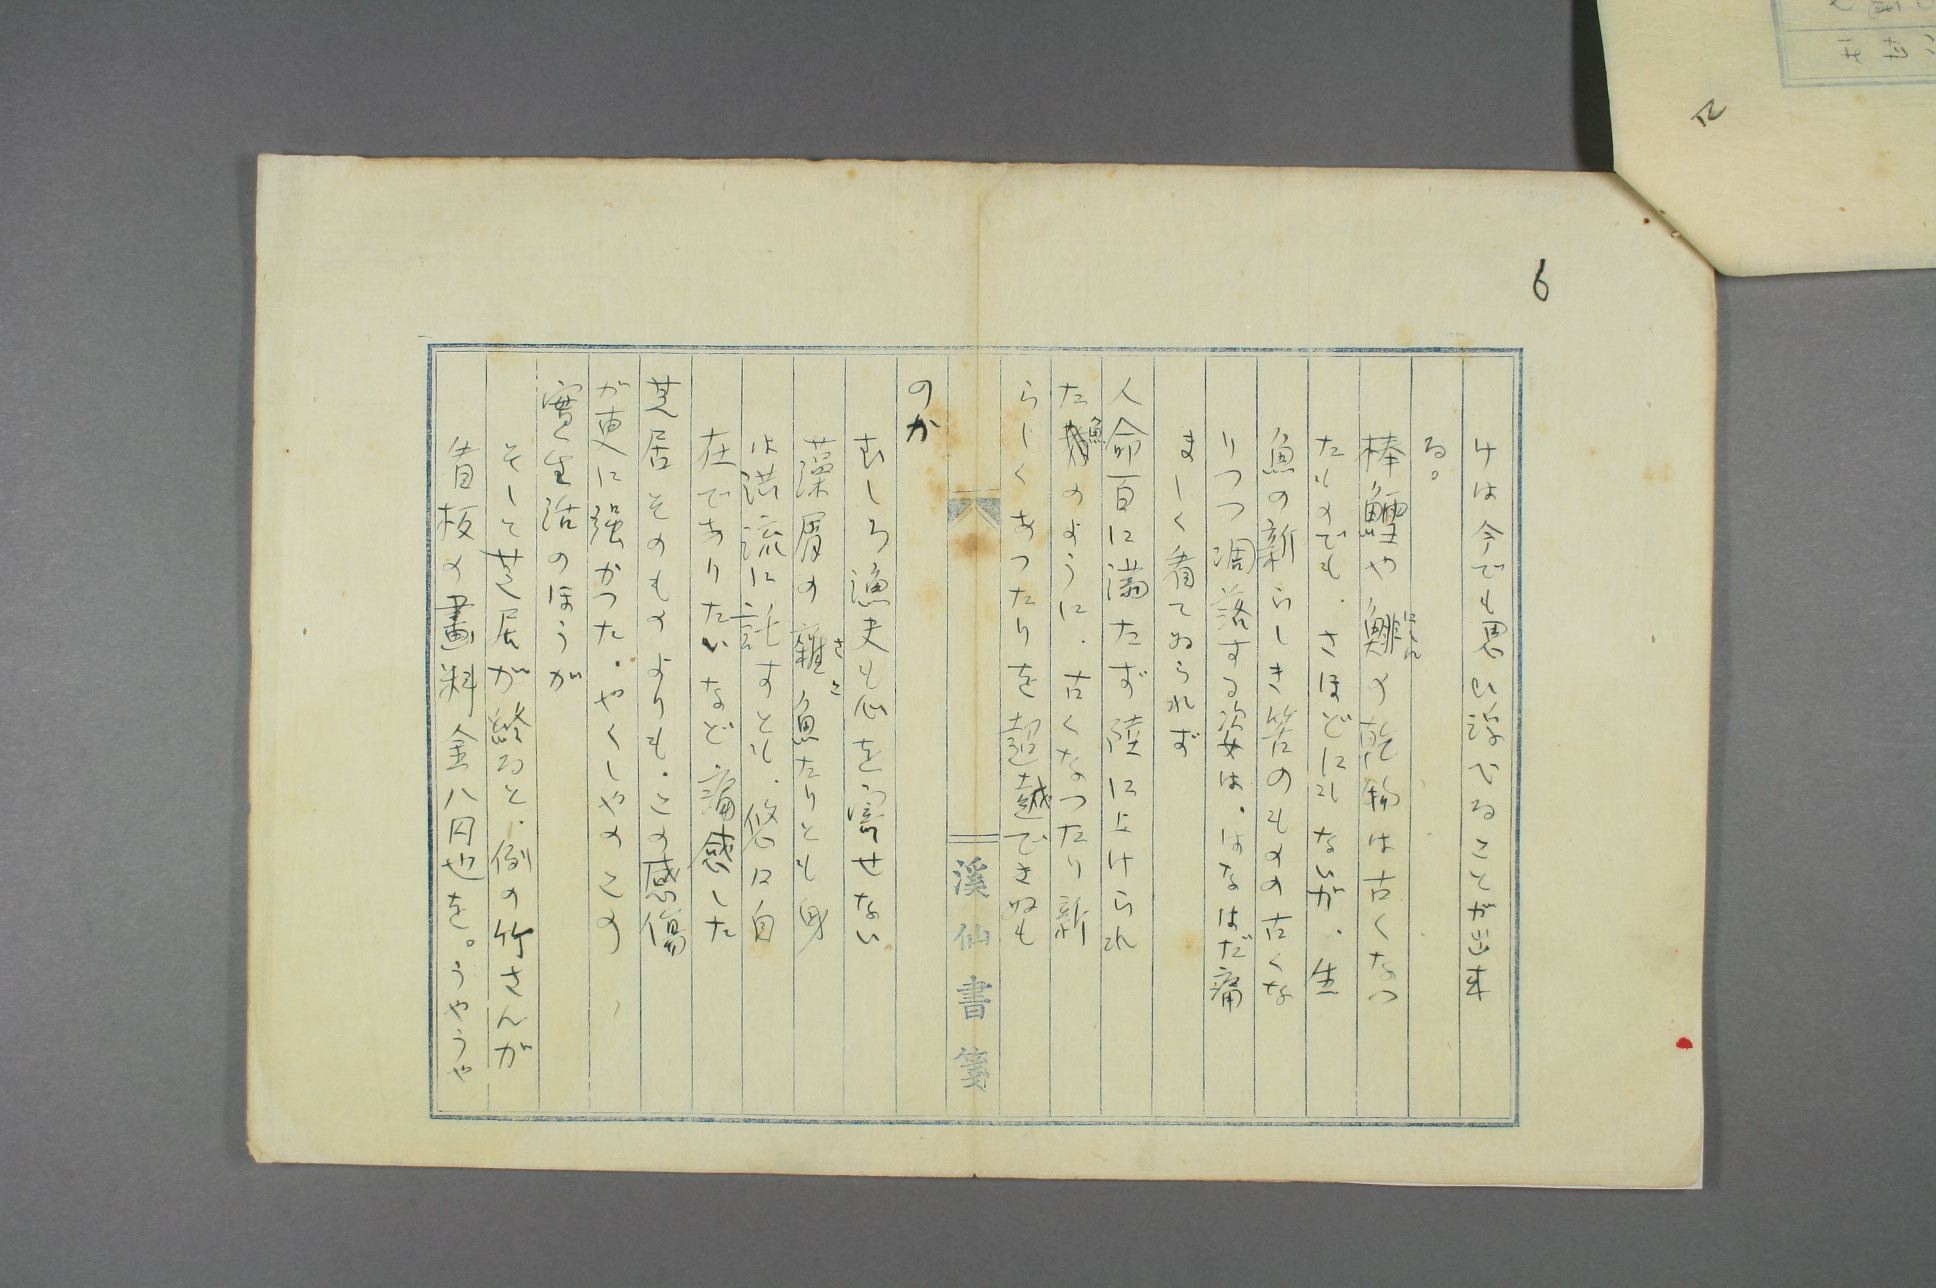 6
けは今でも思ひ浮べることが出来
る。
棒鱈や鯡の乾物は古くなつ
にしん
たものでも、さほどにはないが、生
魚の新らしき筈のものの古くな
りつつ凋落する姿は、はなはだ痛
ましく看てゐられず
人命百に満たず陸に上げられ
た魚のように、古くなつたり新
らしくあつたりを超越できぬも
溪仙書箋
のか
むしろ漁夫も心を寄せない
藻屑の雑魚たりとも身
ざこ
は洪流に託すとも、悠に自
在でありたいなど痛感した
芝居そのものよりも、この感傷
が更に強かつた、やくしやのこの
實生活のほうが
そして芝居が終ると、例の竹さんが
看板の畫料金八円也を。うやうや